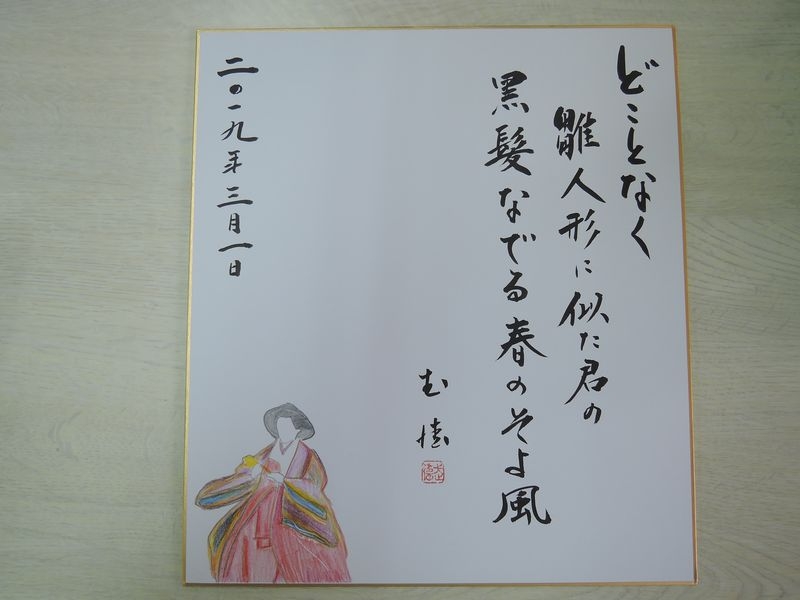 どことなく
雛人形に似た君の
黒髪なでる春のそよ風
二〇一九年三月一日